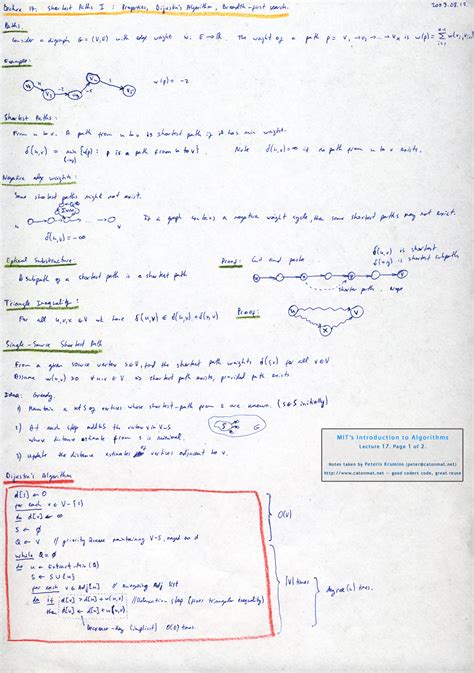 Lecture 17: Shortest Paths I: Properties, Dijkstra's Algorithm, Breadth-first search. 2009.03.12.
Paths:
Consider a digraph G = (V, E) with edge weight w: E → R. The weight of a path p = v₁→v₂→ ... →vₖ is w(p) =
Example:
w(p) = -2
Shortest Paths:
From u to v. A path from u to v is shortest path if it has min weight.
δ(u,v) = min {w(p): p is a path from u to v}. Note δ(u,v)=∞ if no path from u to v exists.
Negative edge weights:
Some shortest paths might not exist.
If a graph contains a negative weight cycle, then some shortest paths may not exist.
δ(u,v) = -∞
Optimal Substructure: Proof: Cut and paste
is shortest
is shortest subpath
A subpath of a shortest path is a shortest path
shorter path. Nope
Triangle Inequality: Proof:
For all u,v,x ∈ V we have δ(u,v) ≤ δ(u,x)+δ(x,v)
Single-Source Shortest Path
From a given source vertex s∈V, find the shortest path weights δ(s,v) for all v∈V
Assume w(u,v) ≥ 0 ∀ u,v ∈ V ⇒ shortest path exists, provided path exists
Idea: Greedy
1) Maintain a set S of vertices whose shortest-path from s are known (s∈S initially)
2) At each step add to S the vertex v∈V-S
whose distance estimate from s is minimal.
3) Update the distance estimates of vertices adjacent to v.
MIT's Introduction to Algorithms
Lecture 17. Page 1 of 2.
Notes taken by Peteris Krumins (peter@catonmat.net)
http://www.catonmat.net — good coders code, great reuse
Dijkstra's Algorithm
d[s] ← 0
for each v ∈ V-{s}
do d[v] ← ∞
S ← ∅
O(V)
Q ← V // priority queue maintaining V-S, keyed on d
while Q ≠ ∅
do u ← Extract-Min(Q)
S ← S ∪ {u}
for each v ∈ Adj[u] // examining Adj list
do if d[v] > d[u] + w(u,v) // Relaxation step (fixes triangular inequality)
then d[v] ← d[u] + w(u,v)
Decrease-Key (implicit)
|V| times
degree(u) times